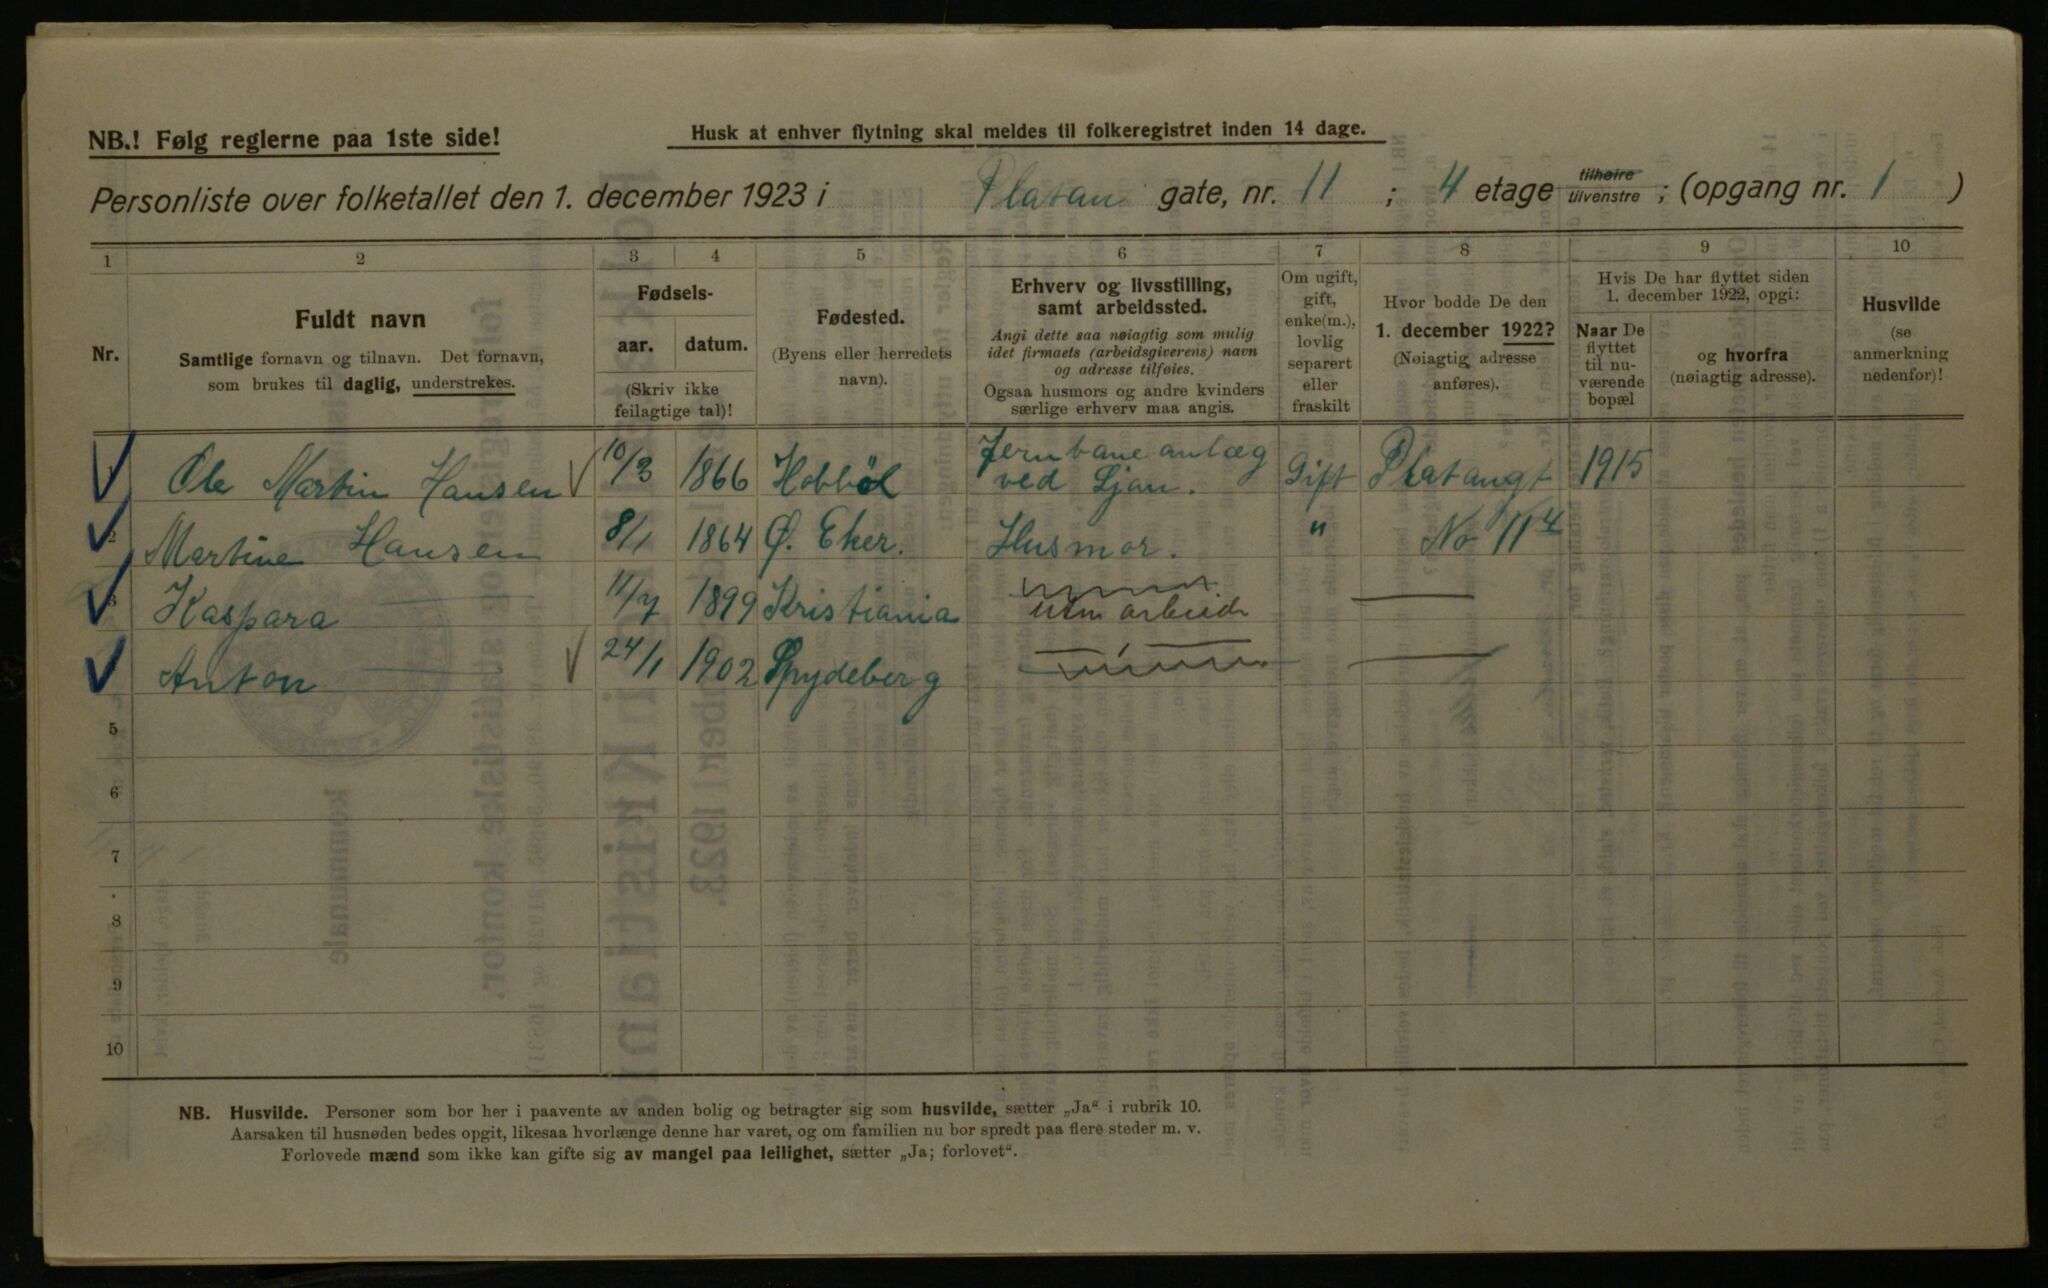 NB.! Følg reglerne paa 1ste side!
Husk at enhver flytning skal meldes til folkeregistret inden 14 dage.
Personliste over folketallet den 1. december 1923 i Platan gate, nr. 11 ; 4 etage tilhøire tilvenstre ; (opgang nr. 1 )
1 2 3 4 5 6 7 8 9 10
Nr.
Fuldt navn
Samtlige fornavn og tilnavn. Det fornavn,
som brukes til daglig, understrekes.
Fødsels-
aar. datum.
(Skriv ikke
feilagtige tal)!
Fødested.
(Byens eller herredets
navn).
Erhverv og livsstilling,
samt arbeidssted.
Angi dette saa nøiagtig som mulig
idet firmaets (arbeidsgiverens) navn
og adresse tilføies.
Ogsaa husmors og andre kvinders
særlige erhverv maa angis.
Om ugift,
gift,
enke(m.),
lovlig
separert
eller
fraskilt
Hvor bodde De den
1. december 1922?
(Nøiagtig adresse
anføres).
Hvis De har flyttet siden
1. december 1922, opgi:
Naar De
flyttet
til nu-
værende
bopæl
og hvorfra
(nøiagtig adresse).
Husvilde
(se
anmerkning
nedenfor)!
Ole Martin Hansen 10/3 1866 Hobbøl Jernbaneanlæg ved Ljan. Gift Platangt 1915
2 Martine Hansen 8/1 1864 Ø. Eker. Husmor. " No 11 4
3 Kaspara — 11/7 1899 Kristiania uten arbeide —
Anton — 24/1 1902 Spydeberg — " — —
5
6
7
8
9
10
NB. Husvilde. Personer som bor her i paavente av anden bolig og betragter sig som husvilde, sætter „Ja“ i rubrik 10.
Aarsaken til husnøden bedes opgit, likesaa hvorlænge denne har varet, og om familien nu bor spredt paa flere steder m. v.
Forlovede mænd som ikke kan gifte sig av mangel paa leilighet, sætter „Ja; forlovet“.